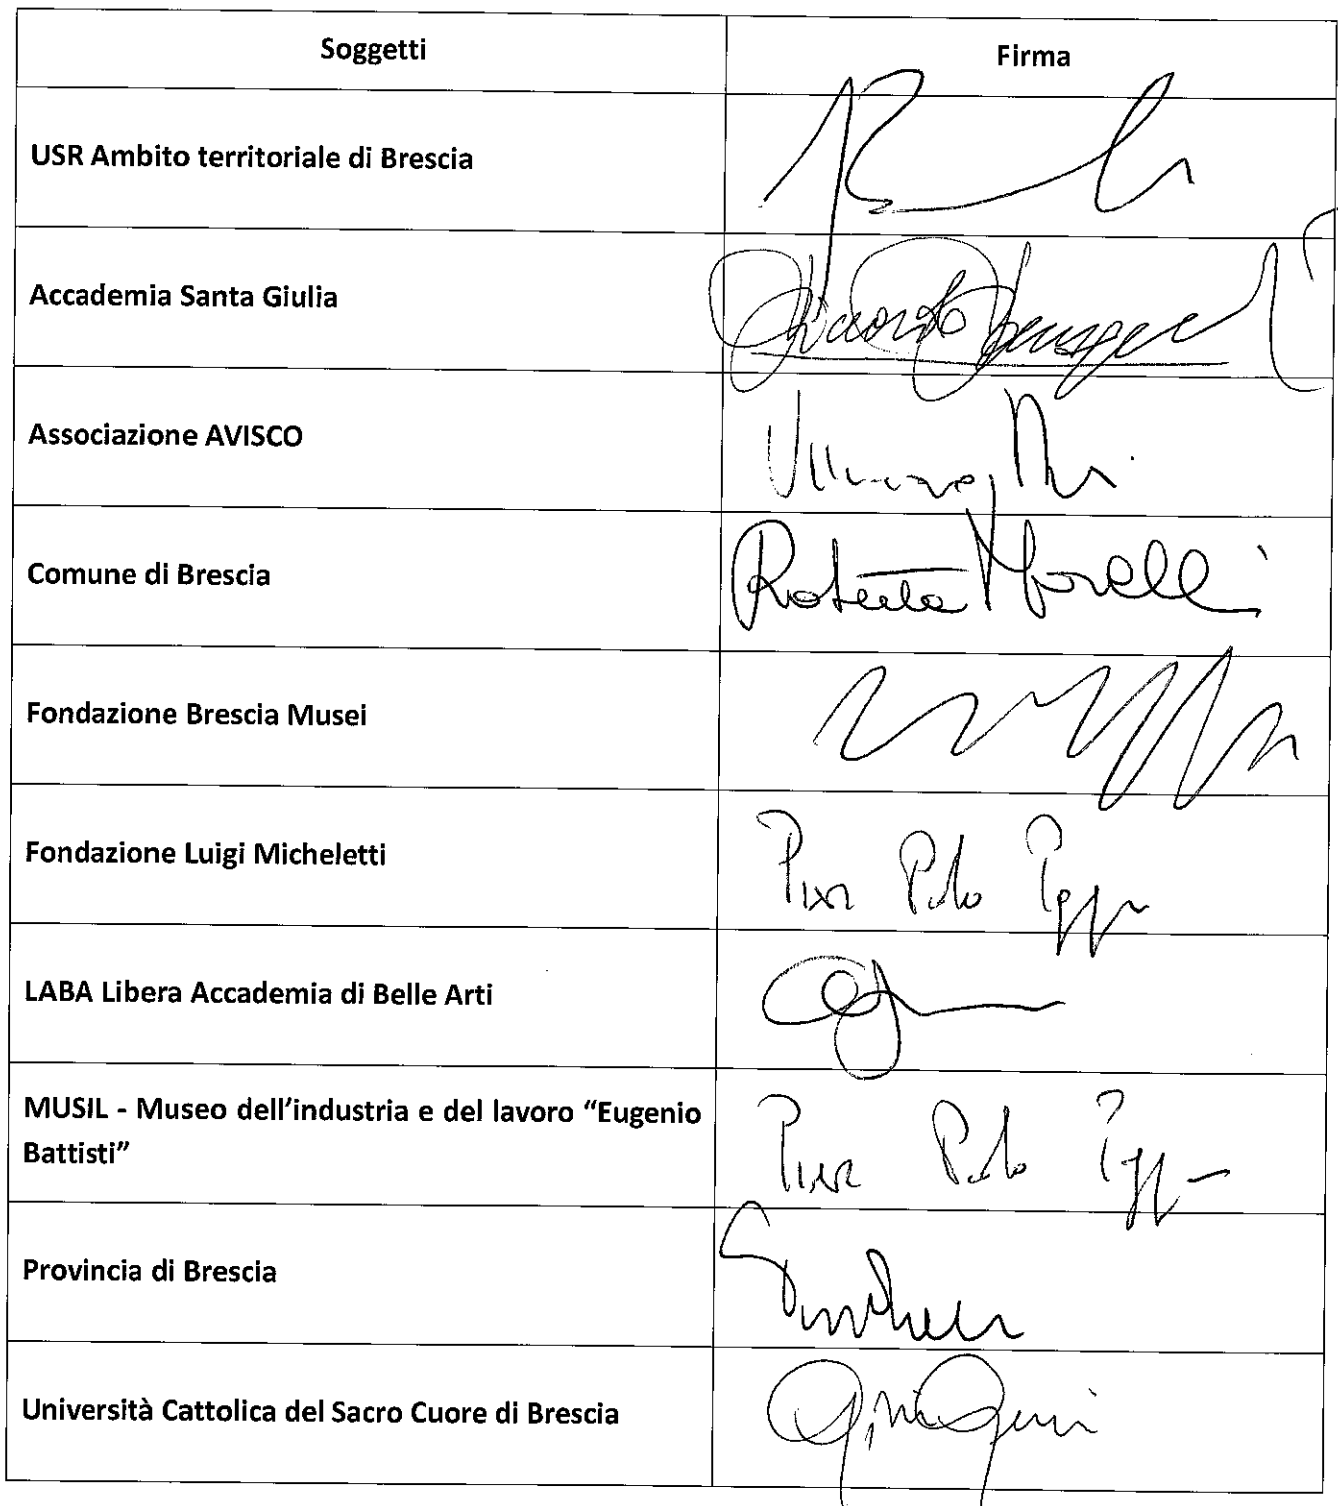 Soggetti
Firma
USR Ambito territoriale di Brescia
Accademia Santa Giulia
Associazione AVISCO
Comune di Brescia
Roberta Morelli
Fondazione Brescia Musei
Fondazione Luigi Micheletti
Pier Paolo Poggio
LABA Libera Accademia di Belle Arti
MUSIL - Museo dell'industria e del lavoro “Eugenio
Battisti”
Pier Paolo Poggio
Provincia di Brescia
Università Cattolica del Sacro Cuore di Brescia